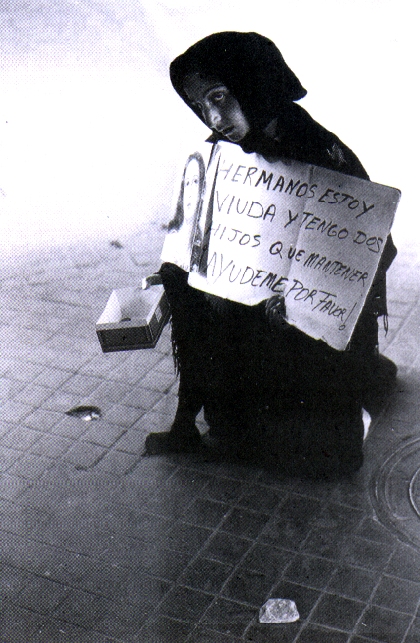 HERMANOS ESTOY
VIUDA Y TENGO DOS
HIJOS QUE MANTENER
AYUDEME POR FAVER!